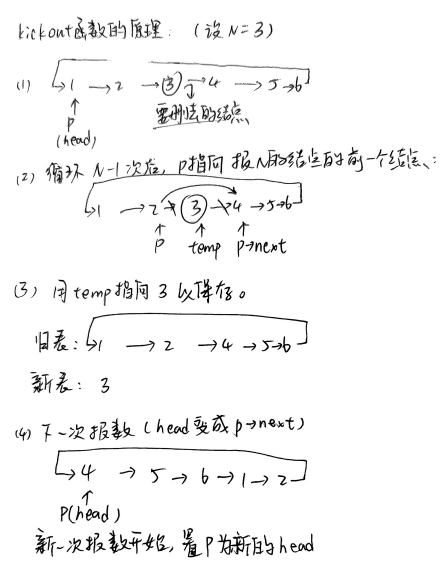 kickout函数的原理：（设N=3）
(1) 1 → 2 → 3 → 4 → 5 → 6
P 要删去的结点
(head)
(2) 循环 N-1次后，P指向报N的结点的前一个结点、
1 → 2 → 3 → 4 → 5 → 6
P temp p→next
(3) 用temp指向 3 以保存。
旧表：1 → 2 → 4 → 5 → 6
新表：3
(4) 下一次报数（head变成p→next）
4 → 5 → 6 → 1 → 2
P(head)
新一次报数开始，置P为新的head